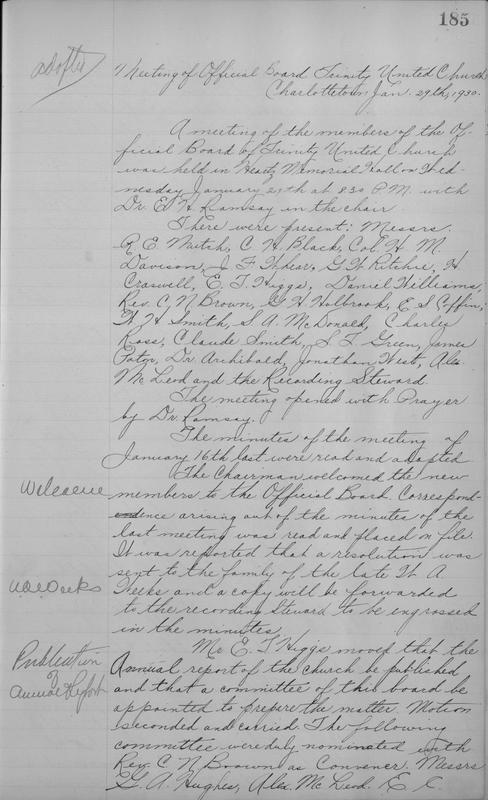 185
adopted
Meeting of Official Board Trinity United Church
Charlottetown Jan. 29th, 1930.
A meeting of the members of the Of-
ficial Board of Trinity United Church
was held in Heartz Memorial Hall on Wed-
nesday January 29th at 8 30 P.M. with
Dr. E. H. Ramsay in the chair.
There were present: Messrs.
R. E. Mutch, C. H. Black, Col. H. M.
Davison, J. F. Whear, G. W. Ritchie, H.
Craswell, E. T. Higgs, Daniel Williams,
Rev. C. N. Brown, G. H. Holbrook, E. S. Coffin,
W. H. Smith, S. A. McDonald, Charles
Ross, Claude Smith, S. F. Green, James
Paton, Dr. Archibald, Jonathan West, Alex.
McLeod and the Recording Steward.
The meeting opened with Prayer
by Dr. Ramsay.
The minutes of the meeting of
January 16th last were read and adopted
The Chairman welcomed the new
Welcome
members to the Official Board. Correspond-
ence arising out of the minutes of the
last meeting was read and placed on file.
It was reported that a resolution was
sent to the family of the late W. A.
Weeks
Weeks and a copy will be forwarded
to the recording Steward to be engrossed
in the minutes.
Mr. E. T. Higgs moved that the
Publication
of
Annual Report
Annual report of the church be published
and that a committee of this board be
appointed to prepare the matter. Motion
seconded and carried. The following
committee were duly nominated with
Rev. C. N. Broown as Convener. Messrs
G. A. Hughes, Alex. McLeod. E. C.